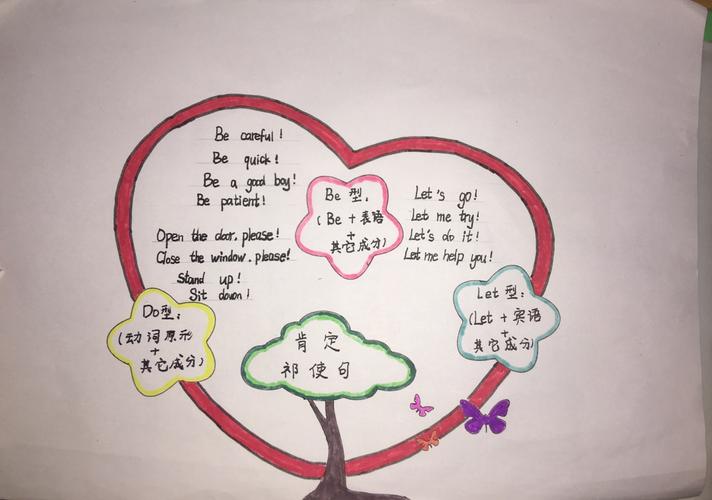 Be careful!
Be quick!
Be a good boy!
Be patient!
Open the door, please!
Close the window, please!
Stand up!
Sit down!
Be 型:
(Be + 表语
+
其它成分)
Let's go!
Let me try!
Let's do it!
Let me help you!
Do型:
(动词原形
+
其它成分)
Let型:
(Let + 宾语
+
其它成分)
肯定
祁使句